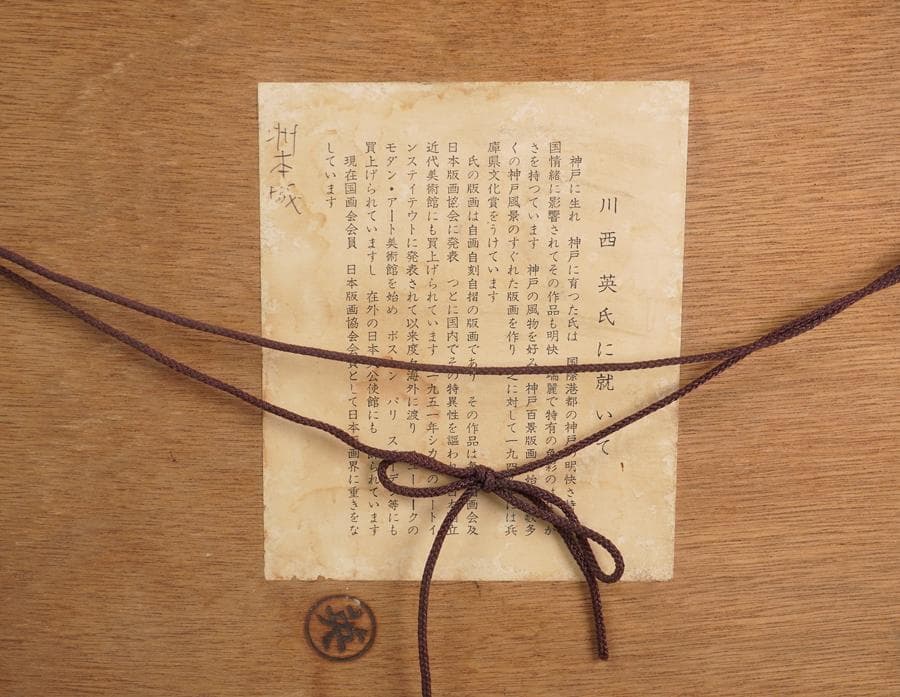 川西英氏に就いて
神戸に生れ 神戸に育つた氏は 国際港都の神戸の明快さ
国情緒に影響されてその作品も明快 瑞麗で特有の色彩の
さを持つています 神戸の風物を好み 神戸百景版画 始 数多
くの神戸風景のすぐれた版画を作り 之に対して一九四 には兵
庫県文化賞をうけています
氏の版画は自画自刻自摺の版画であり その作品は 画会及
日本版画協会に発表 つとに国内でその特異性を謳われ 立
近代美術館にも買上げられています 一九五一年シカ の ートイ
ンステイテウトに発表されて以来度々海外に渡り ニユーヨークの
モダン・アート美術館を始め ボストン パリ スエーデン等にも
買上げられていますし 在外の日本大公使館にも 飾られています
現在国画会会員 日本版画協会会員として日本版画界に重きをな
しています
洲本城
英